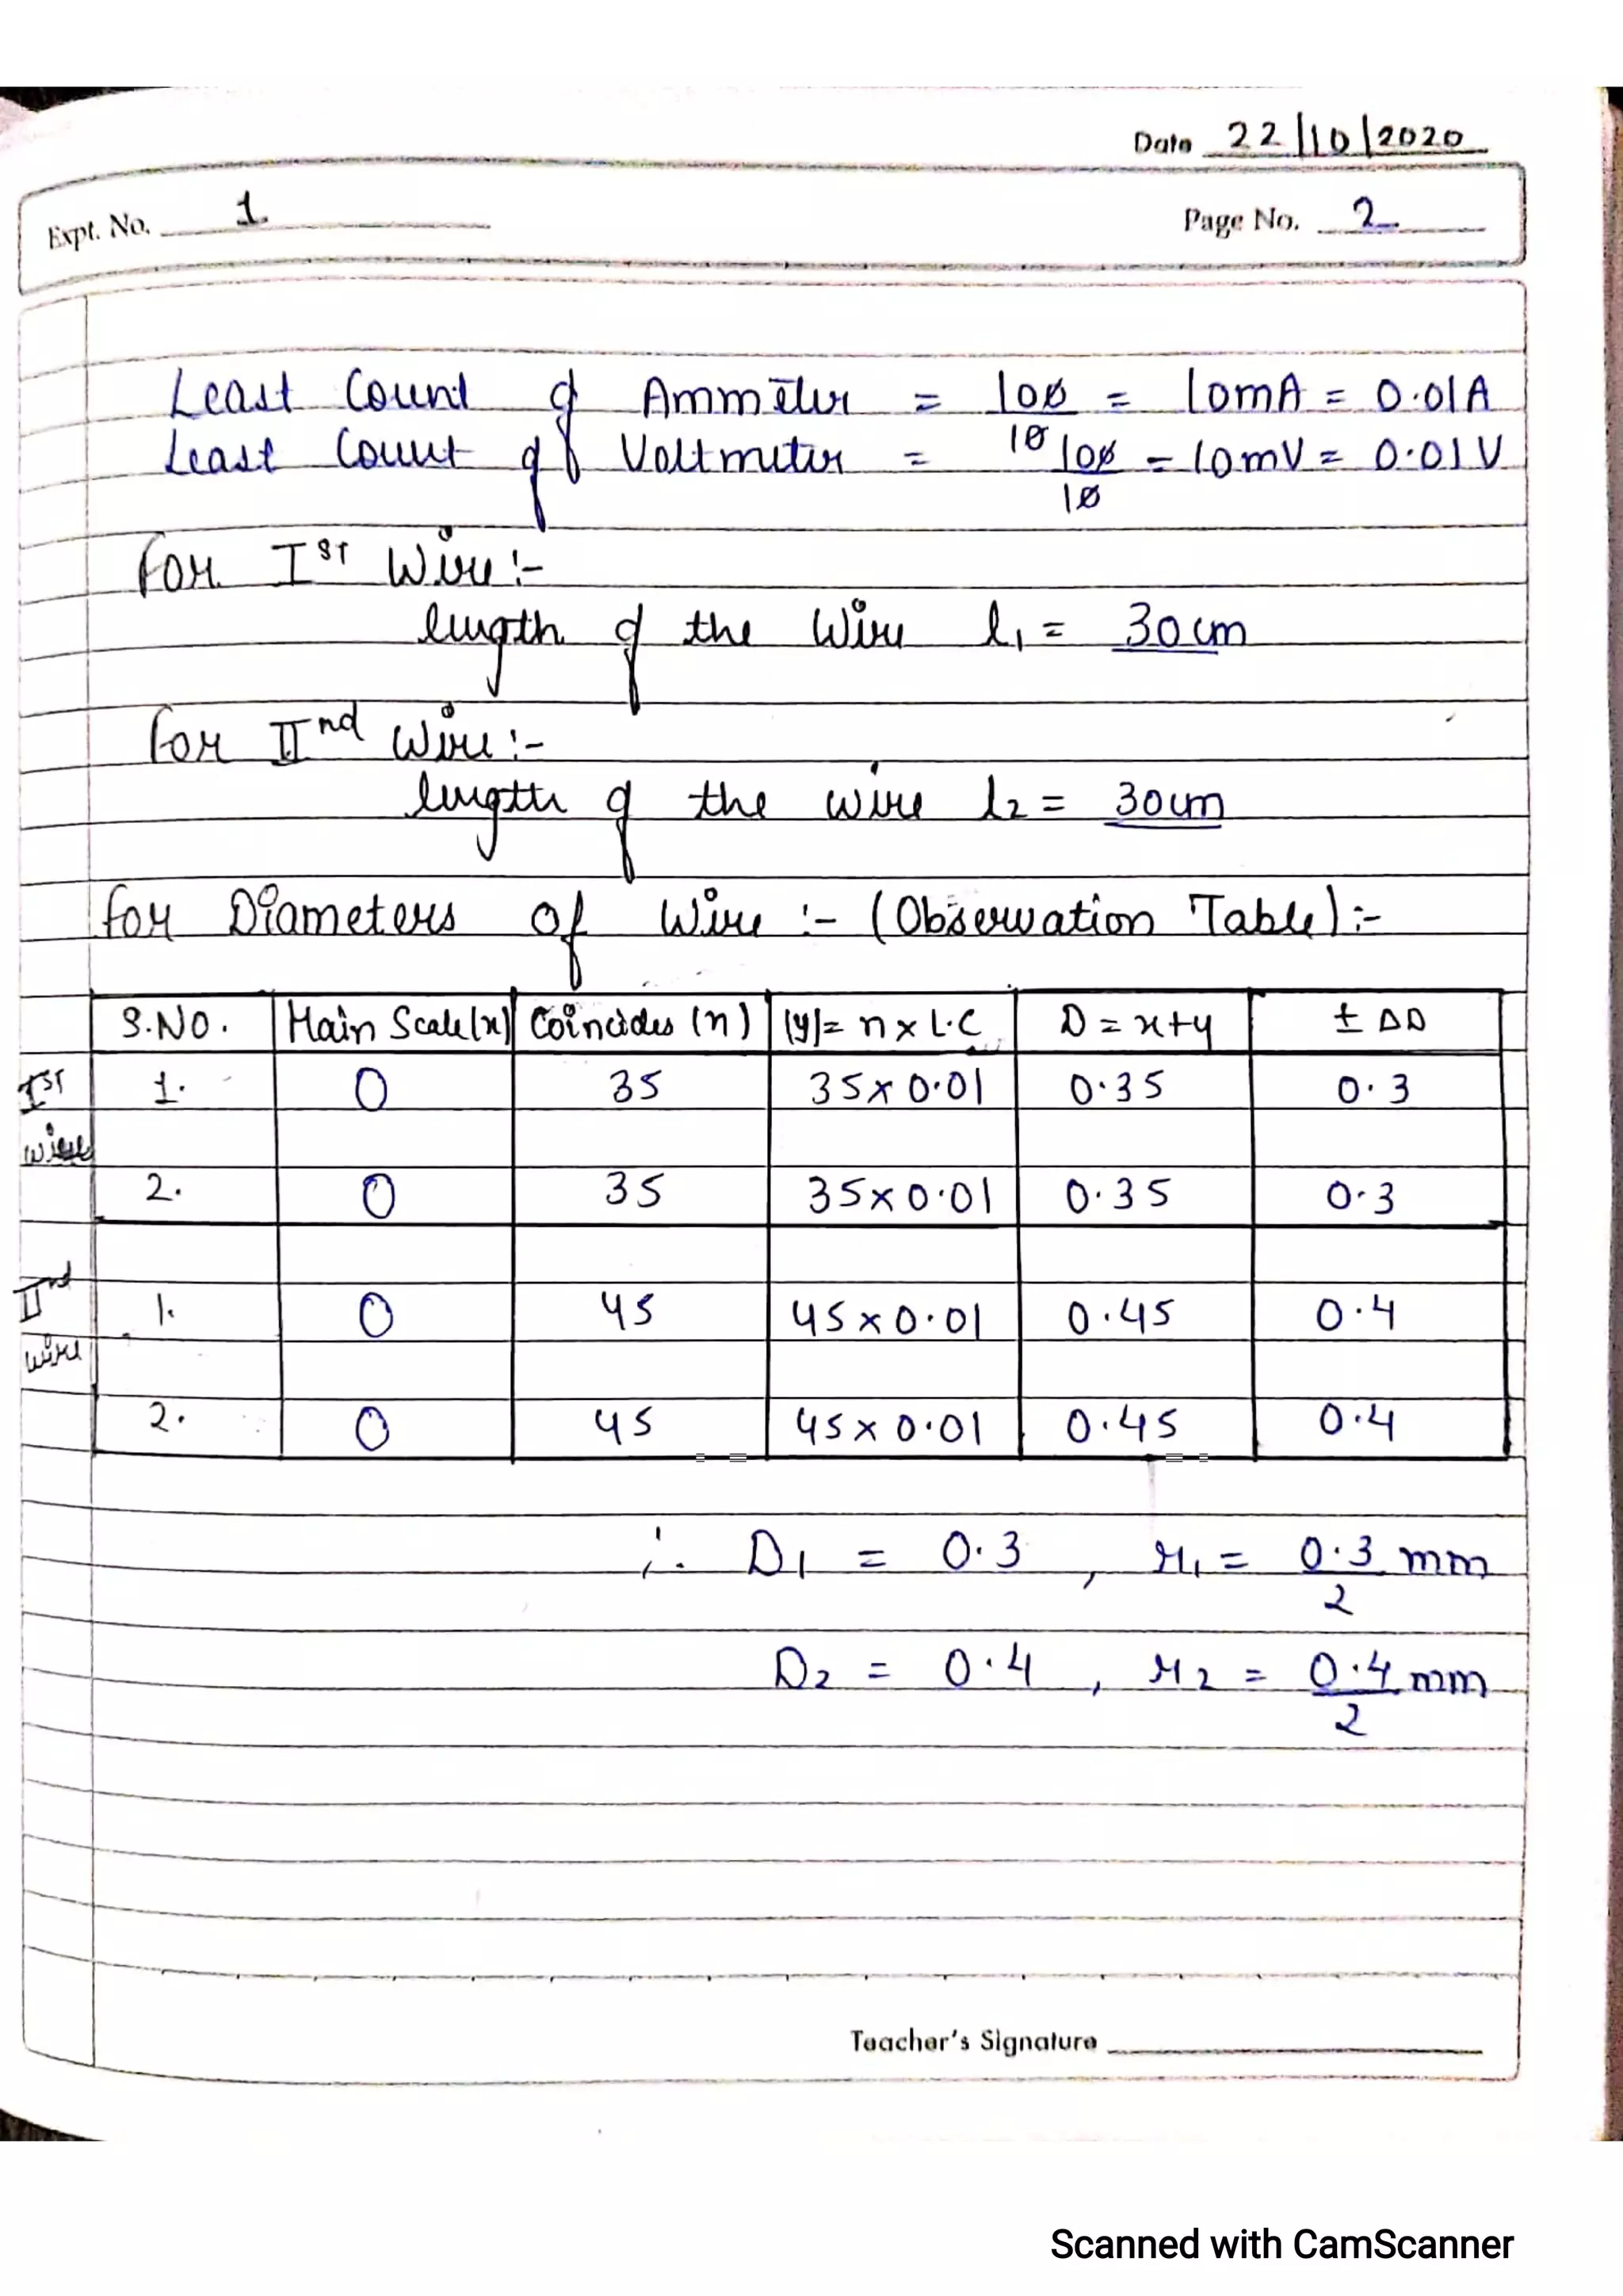 Date 22/10/2020
Expt. No. 1
Page No. 2
Least Count of Ammeter = 100/10 = 10mA = 0.01A
Least Count of Voltmeter = 100/10 = 10mV = 0.01V
For Ist Wire :-
length of the Wire l1 = 30cm
For IInd Wire :-
length of the wire l2 = 30cm
for Diameters of Wire :- (Observation Table) :-
S.NO. Main Scale(x) Coincides (n) (y)= n x L.C D = x+y ± ΔD
Ist wire 1. 0 35 35 x 0.01 0.35 0.3
2. 0 35 35 x 0.01 0.35 0.3
IInd wire 1. 0 45 45 x 0.01 0.45 0.4
2. 0 45 45 x 0.01 0.45 0.4
∴ D1 = 0.3 , r1 = 0.3/2 mm
D2 = 0.4 , r2 = 0.4/2 mm
Teacher's Signature
Scanned with CamScanner